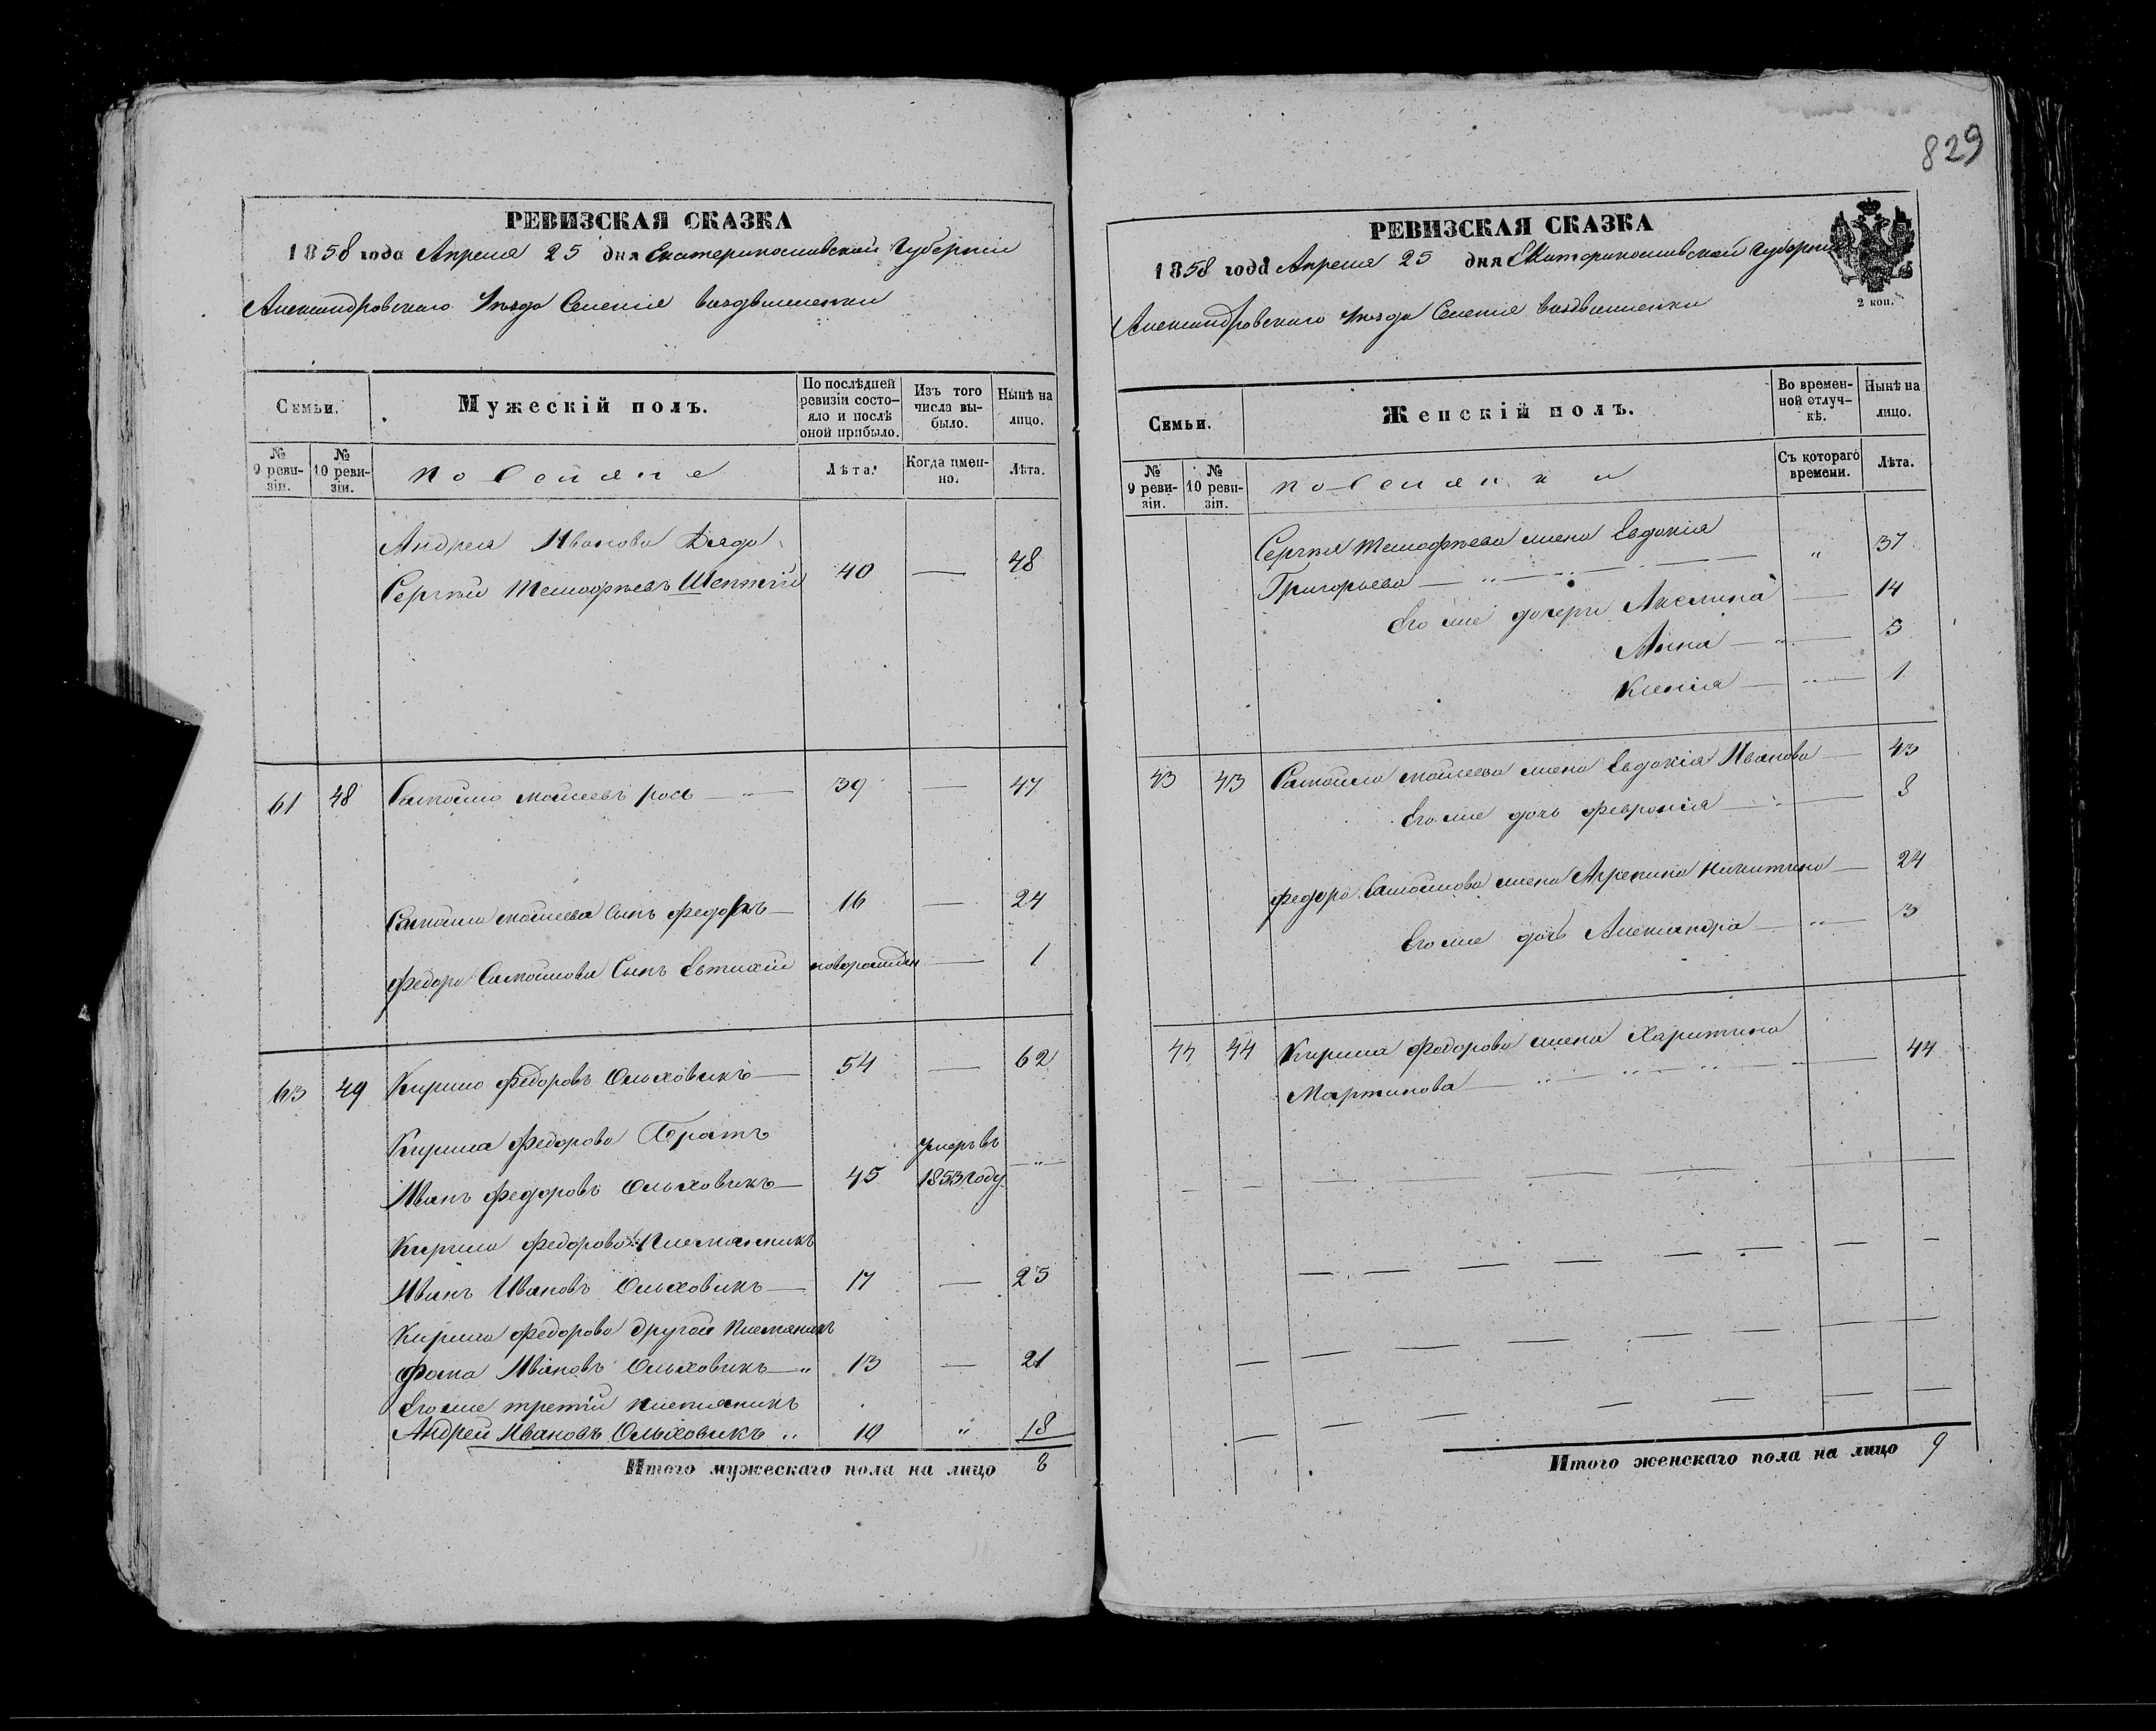 829
РЕВИЗСКАЯ СКАЗКА
1858 года Апреля 25 дня Екатеринославской Губернии
Александровского Уезда Селения Воздвиженки
Семьи.
Мужескій полъ.
По послѣдней ревизіи состо-
яло и послѣ
оной прибыло.
Изъ того
числа вы-
было.
Нынѣ на
лицо.
№
9 реви-
зіи.
№
10 реви-
зіи.
поселяне
Лѣта.
Когда имен-
но.
Лѣта.
Андрея Иванова Дядя
Сергѣй Тимофѣевъ Шептій 40 — 48
61 48 Самойло Мойсеевъ Рось — 39 — 47
Самойла Мойсеева Сынъ Федоръ — 16 — 24
Федора Самойлова Сынъ Евтихий новорожден — 1
63 49 Кирило Федоровъ Ольховикъ — 54 — 62
Кирила Федорова Братъ
Иванъ Федоровъ Ольховикъ — 45 умеръ въ 1853 году — " —
Кирила Федорова Племянникъ
Иванъ Ивановъ Ольховикъ — 17 — 25
Кирила Федорова другой племяникъ
Фома Ивановъ Ольховикъ — " 13 — 21
Его же третій племяникъ
Андрей Ивановъ Ольховикъ " 10 " 18
Итого мужескаго пола на лицо 8
РЕВИЗСКАЯ СКАЗКА
1858 года Апреля 25 дня Екатеринославской Губернии
2 коп.
Александровского Уезда Селения Воздвиженки
Семьи.
Женскій полъ.
Во времен-
ной отлуч-
кѣ.
Нынѣ на
лицо.
№
9 реви-
зіи.
№
10 реви-
зіи.
поселянки
Съ котораго
времени.
Лѣта.
Сергѣя Тимофѣева жена Евдокія
Григорьева — " 37
Его же дочери Акелина — 14
Анна — " — 5
Ксенія — " — 1
43 43 Самойла Мойсеева жена Евдокія Иванова — 43
Его же дочь Февронія — " — 8
Федора Самойлова жена Агрепина Никитина — 24
Его же дочь Александра — " — 3
44 44 Кирила Федорова жена Харитина
Мартинова — " — " — " — 44
Итого женскаго пола на лицо 9